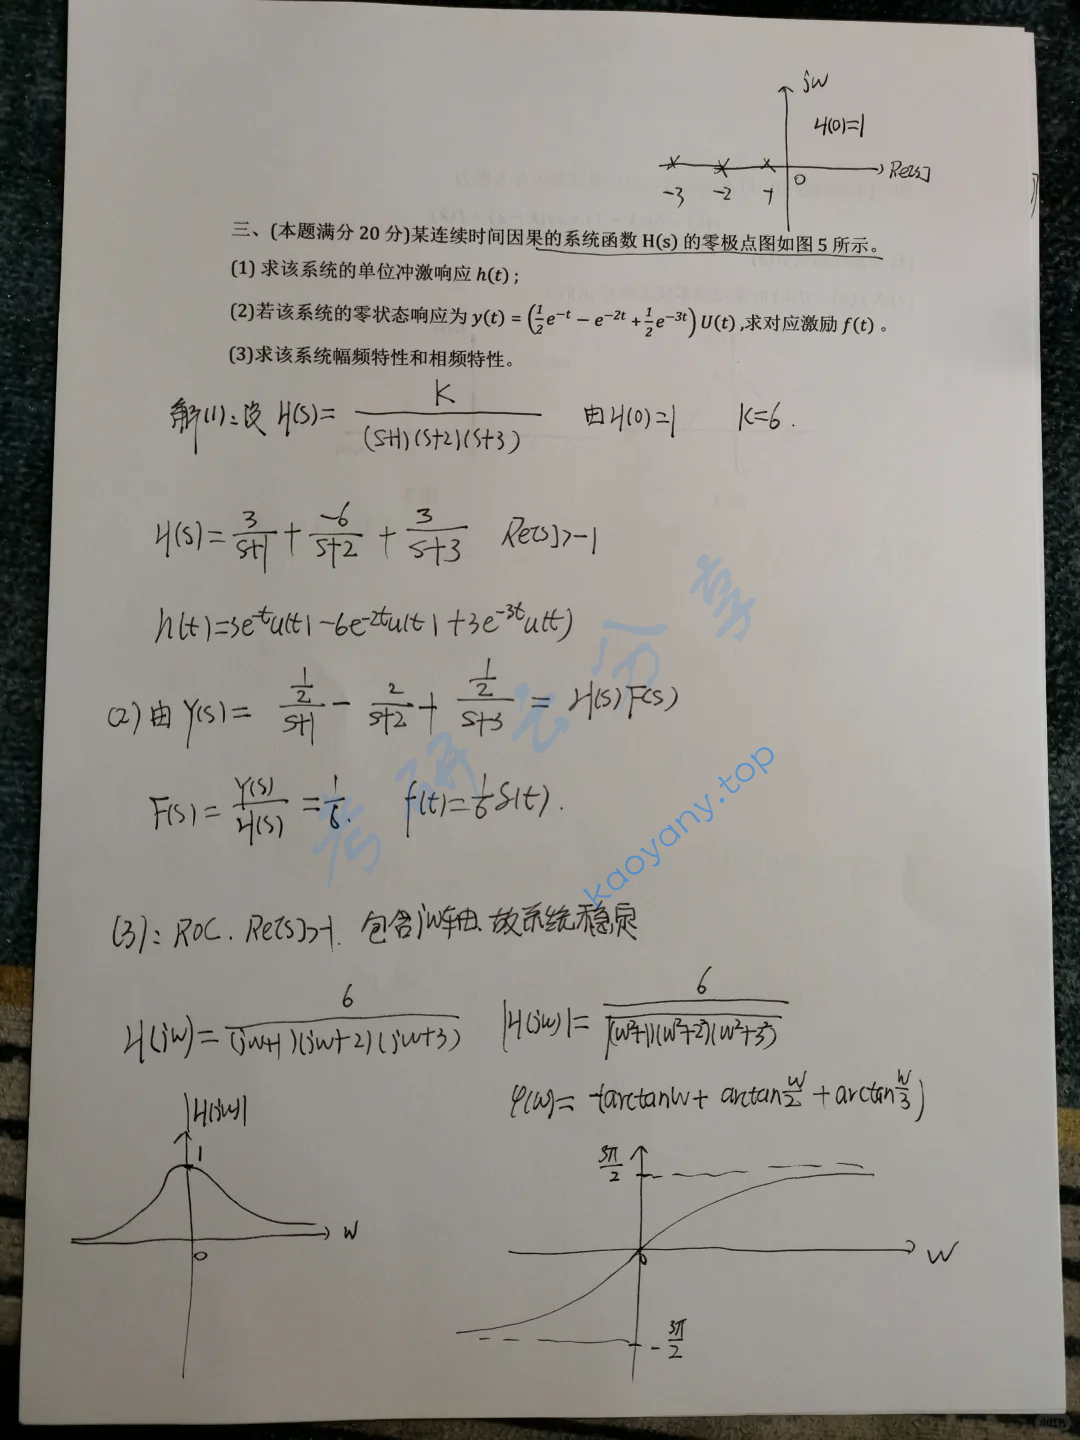 jw
H(0)=1
Re[s]
-3 -2 -1 0
三、(本题满分 20 分)某连续时间因果的系统函数 H(s) 的零极点图如图 5 所示。
(1) 求该系统的单位冲激响应 h(t)；
(2)若该系统的零状态响应为 y(t) = (1/2 e^{-t} − e^{-2t} + 1/2 e^{-3t}) U(t) ,求对应激励 f(t) 。
(3)求该系统幅频特性和相频特性。
解(1): 设 H(s)= K/((s+1)(s+2)(s+3)) 由H(0)=1 K=6.
H(s)= 3/(s+1) + -6/(s+2) + 3/(s+3) Re[s]>-1
h(t)=3e^{-t}u(t)-6e^{-2t}u(t)+3e^{-3t}u(t)
(2) 由 Y(s)= (1/2)/(s+1) - 2/(s+2) + (1/2)/(s+3) = H(s)F(s)
F(s)= Y(s)/H(s) = 1/6. f(t)=1/6 δ(t).
(3): ROC. Re[s]>-1. 包含jw轴. 故系统稳定
H(jw)= 6/((jw+1)(jw+2)(jw+3)) |H(jw)|= 6/√((w²+1)(w²+2²)(w²+3²))
φ(w)= -(arctanw+ arctan w/2 + arctan w/3)
|H(jw)|
1
0
w
3π/2
0
w
-3π/2
考研云分享
kaoyany.top
小红书